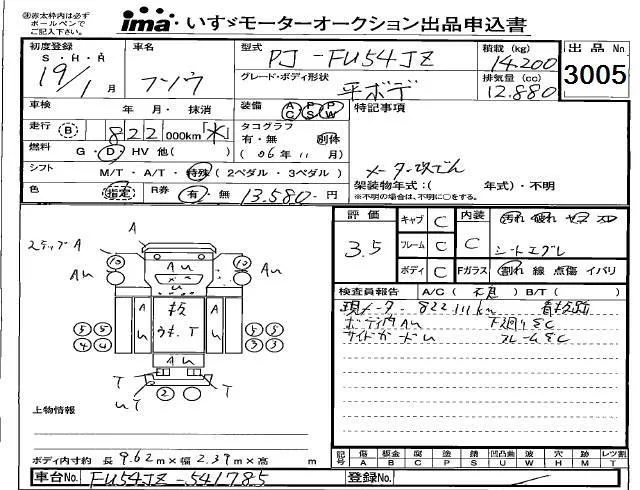 ※赤太枠内は必ず
ボールペンで
ご記入下さい。
ima いすゞモーターオークション出品申込書
初度登録 車名 型式 PJ-FU54JZ 積載 (kg) 14.200 出品No.
S・H・A 19年1月 フソウ グレード・ボディ形状 平ボデ 排気量 (cc) 12.880 3005
車検 年 月・抹消 装備 AC PS PW 特記事項
走行 B 822,000km 米 タコグラフ 有・無 別体
燃料 G・D・HV 他( ) (06年11月) メーター改ざん
シフト M/T・A/T・特殊(2ペダル・3ペダル) 架装物年式:( 年式)・不明
※不明の場合は、不明に○をする。
色 指定 R券 有・無 13.580-円
評価 キャブ C 内装 汚れ 破れ
3.5 フレーム C C シートエグレ
ボディ C Fガラス 割れ 線 点傷 イバリ
検査員報告 A/C( ) B/T( )
現メーター822111km
ボディ内AU 下廻りSC
サイドガードU フレームSC
2ステップA A
10 AU 10
AU AU
U
AU AU
T
5 5 5 5
4 4 3 3
AU
T T
UT 2
上物情報
ボディ内寸約 長 9.62m×幅 2.39m×高 m
記号 傷 A 板金 B 腐 C 塗 P 錆 S 凹凸曲 U 波 W 穴 H 跡 M レツ T
車台No. FU54JZ-541785 登録No.